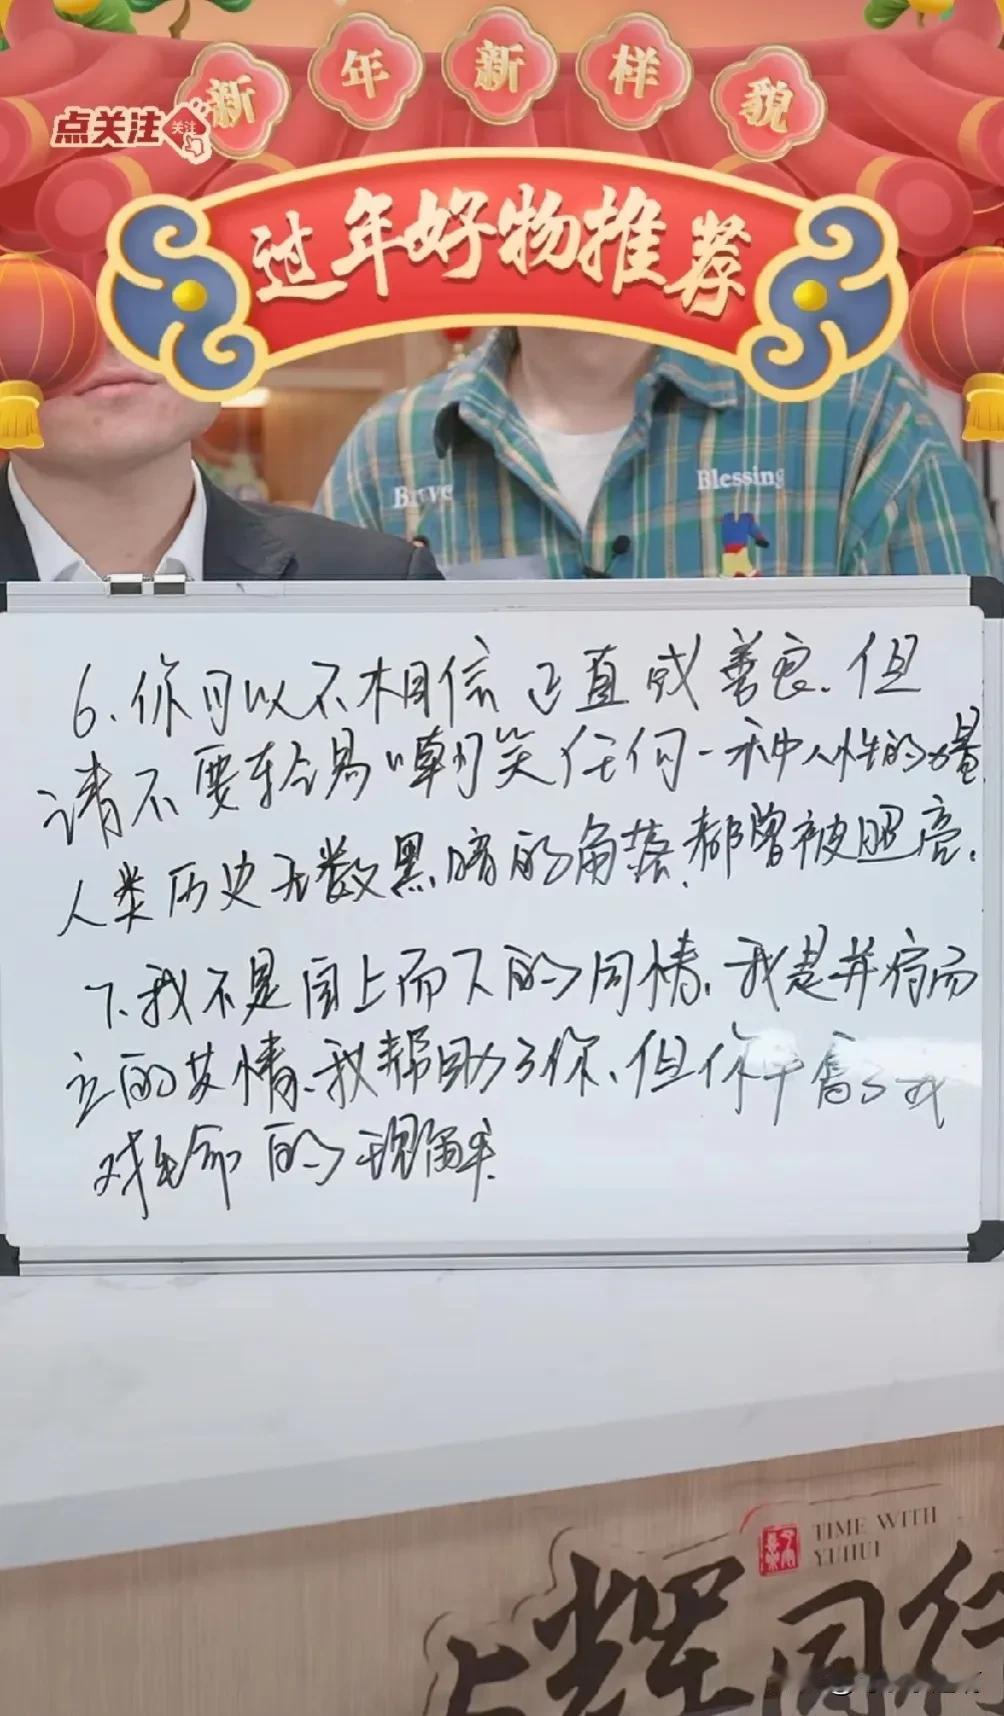 新年新样貌
点关注
关注
过年好物推荐
Brave
Blessing
6、你可以不相信正直或善良、但
请不要轻易嘲笑任何一种人性的
人类历史无数黑暗的角落、都曾被照亮、
7、我不是自上而下的同情、我是并行而
立的共情、我帮助了你、但你丰富了我
对生命的理解
TIME WITH
YUHUI
与辉同行